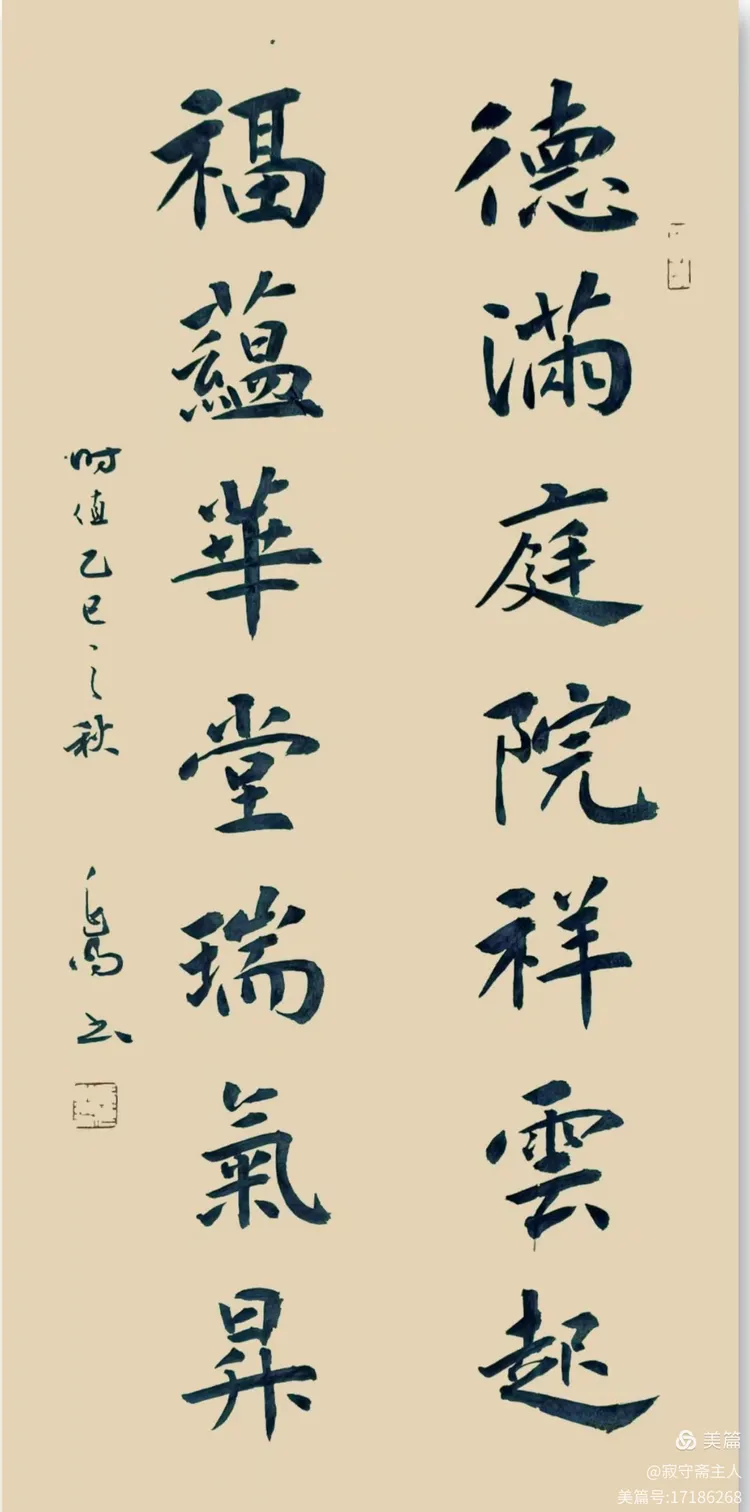 德满庭院祥雲起
福蘊華堂瑞氣昇
时值乙巳之秋
書
美篇
@寂守斋主人
美篇号:17186268